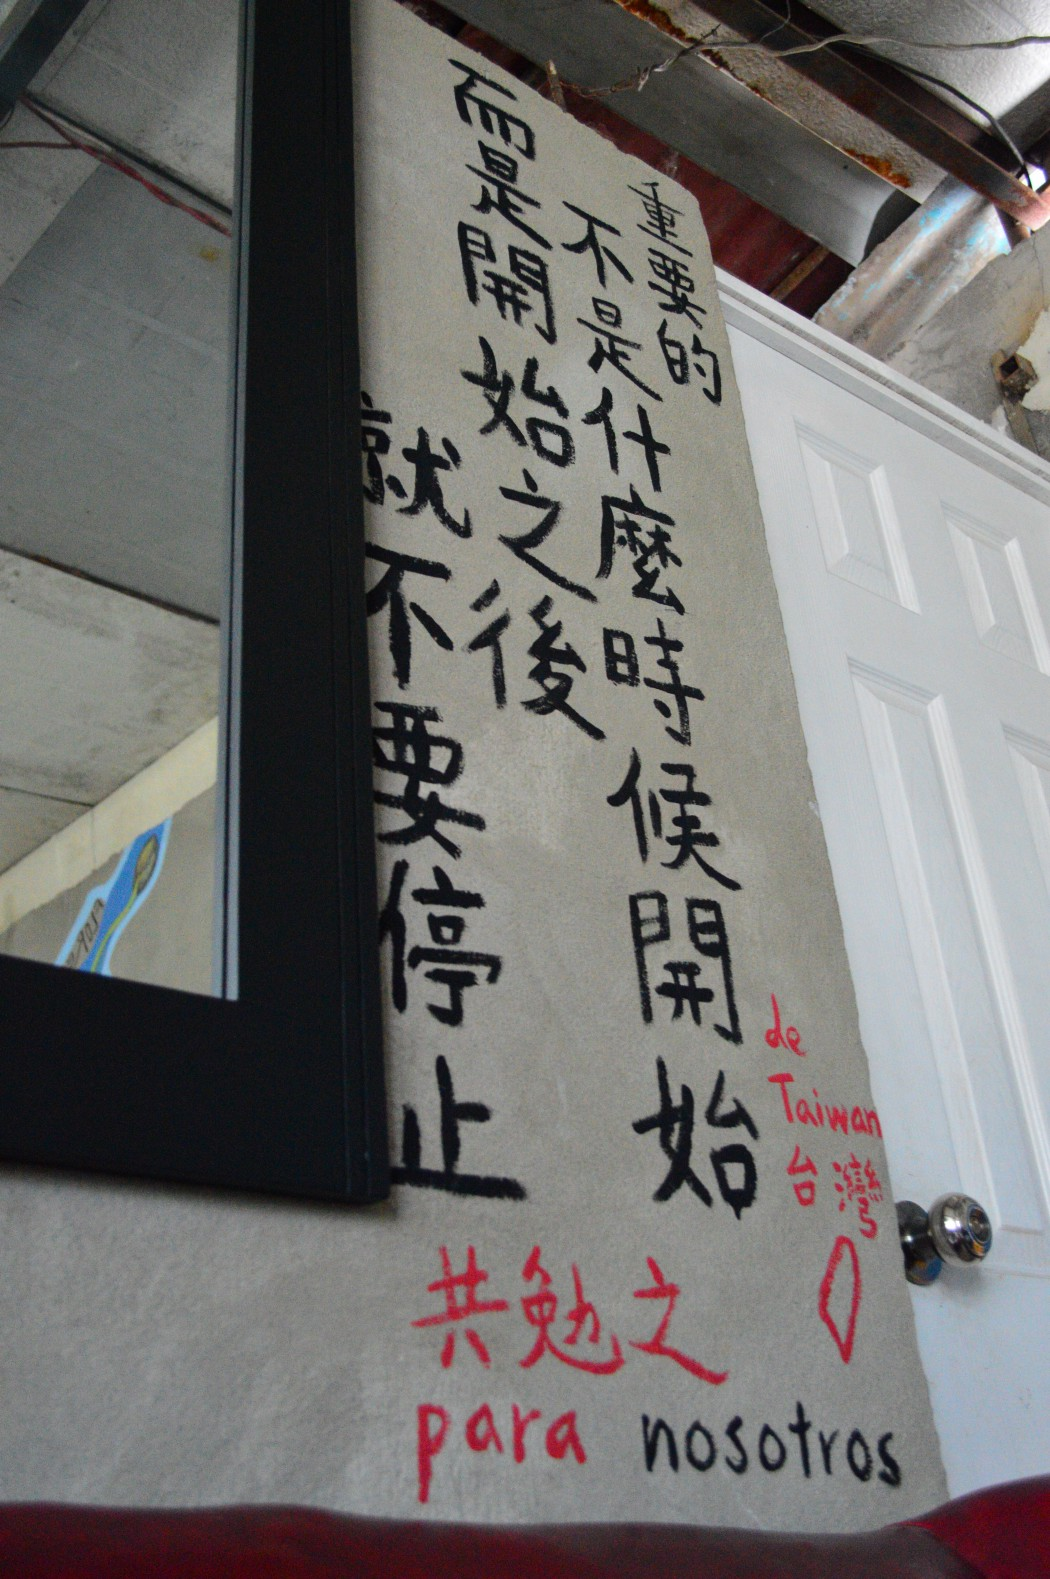 重要的
不是什麼時候開始
而是開始之後
就不要停止
de
Taiwan
台灣
共勉之
para nosotros